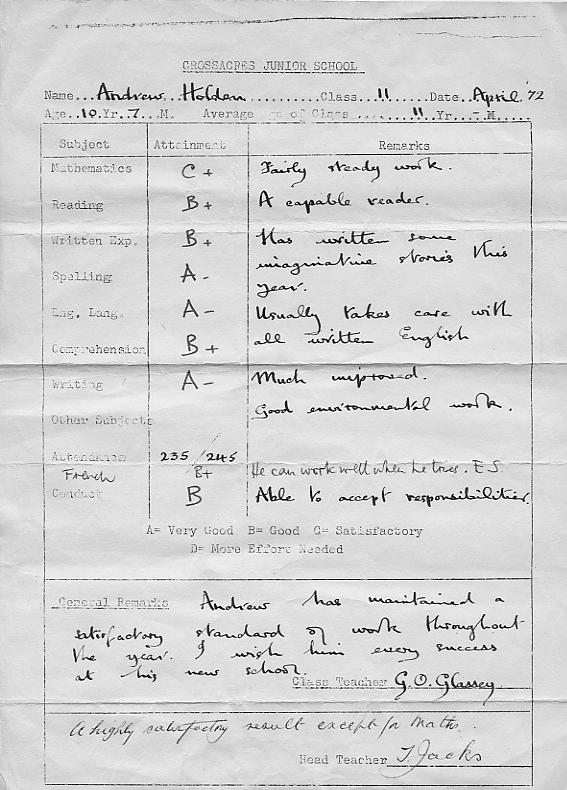 CROSSACRES JUNIOR SCHOOL
Name...Andrew...Holden..........Class...11.....Date..April '72
Age..10.Yr..7..M. Average age of Class .......11.Yr..-.M.....
Subject Attainment Remarks
Mathematics C+ Fairly steady work.
Reading B+ A capable reader.
Written Exp. B+ Has written some
imaginative stories this
Spelling A-
year.
Eng. Lang. A- Usually takes care with
all written English
Comprehension B+
Writing A- Much improved.
Good environmental work.
Other Subjects
Attendance 235/245
French B+ He can work well when he tries. E.S.
Conduct B Able to accept responsibilities.
A= Very Good B= Good C= Satisfactory
D= More Effort Needed
General Remarks Andrew has maintained a
satisfactory standard of work throughout
the year. I wish him every success
at his new school.
Class Teacher G.O. Glassey
A highly satisfactory result except for Maths.
Head Teacher T. Jacks